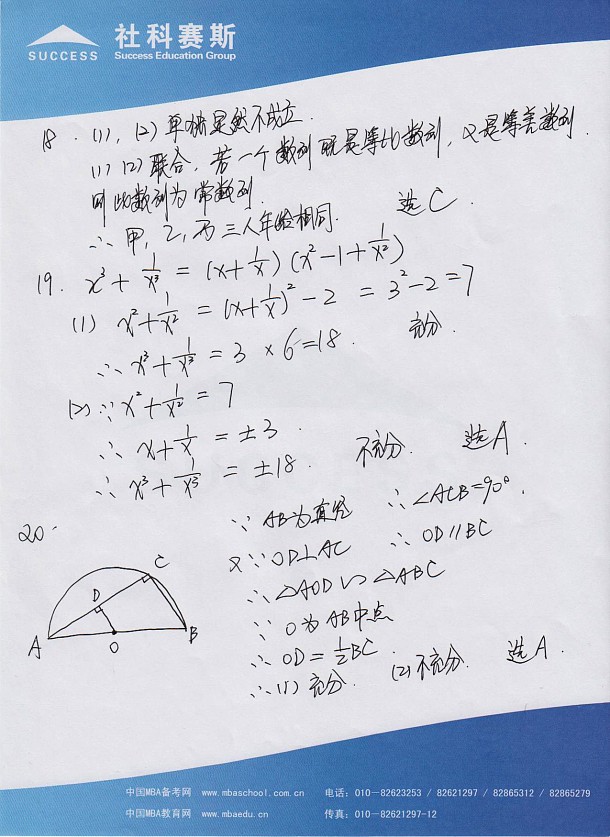 社科赛斯
SUCCESS Success Education Group
18. (1), (2) 单独显然不成立.
(1) (2) 联合, 若一个数列既是等比数列, 又是等差数列
则此数列为常数列.
∴ 甲, 乙, 丙三人年龄相同. 选C.
19. x³ + 1/x³ = (x + 1/x)(x² - 1 + 1/x²)
(1) x² + 1/x² = (x + 1/x)² - 2 = 3² - 2 = 7
∴ x³ + 1/x³ = 3 × 6 = 18. 充分.
(2) ∵ x² + 1/x² = 7
∴ x + 1/x = ±3.
∴ x³ + 1/x³ = ±18. 不充分. 选A.
20.
∵ AB为直径 ∴ ∠ACB = 90°.
又∵ OD⊥AC ∴ OD∥BC
∴ △AOD ∽ △ABC
∵ O为AB中点
∴ OD = 1/2 BC.
∴ (1) 充分. (2) 不充分. 选A.
A D C O B
中国MBA备考网 www.mbaschool.com.cn 电话: 010-82623253 / 82621297 / 82865312 / 82865279
中国MBA教育网 www.mbaedu.cn 传真: 010-82621297-12